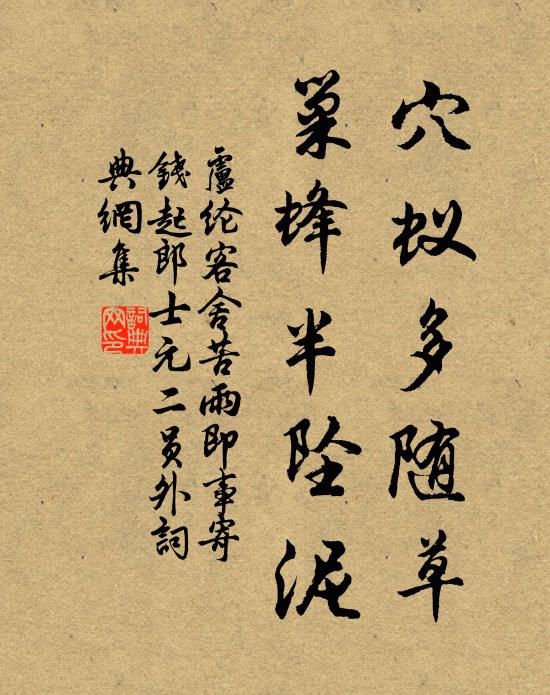 穴蚁多随草
巢蜂半坠泥
盧纶客舍苦雨即事寄
錢起郎士元二员外詞
典網集
詞典网印